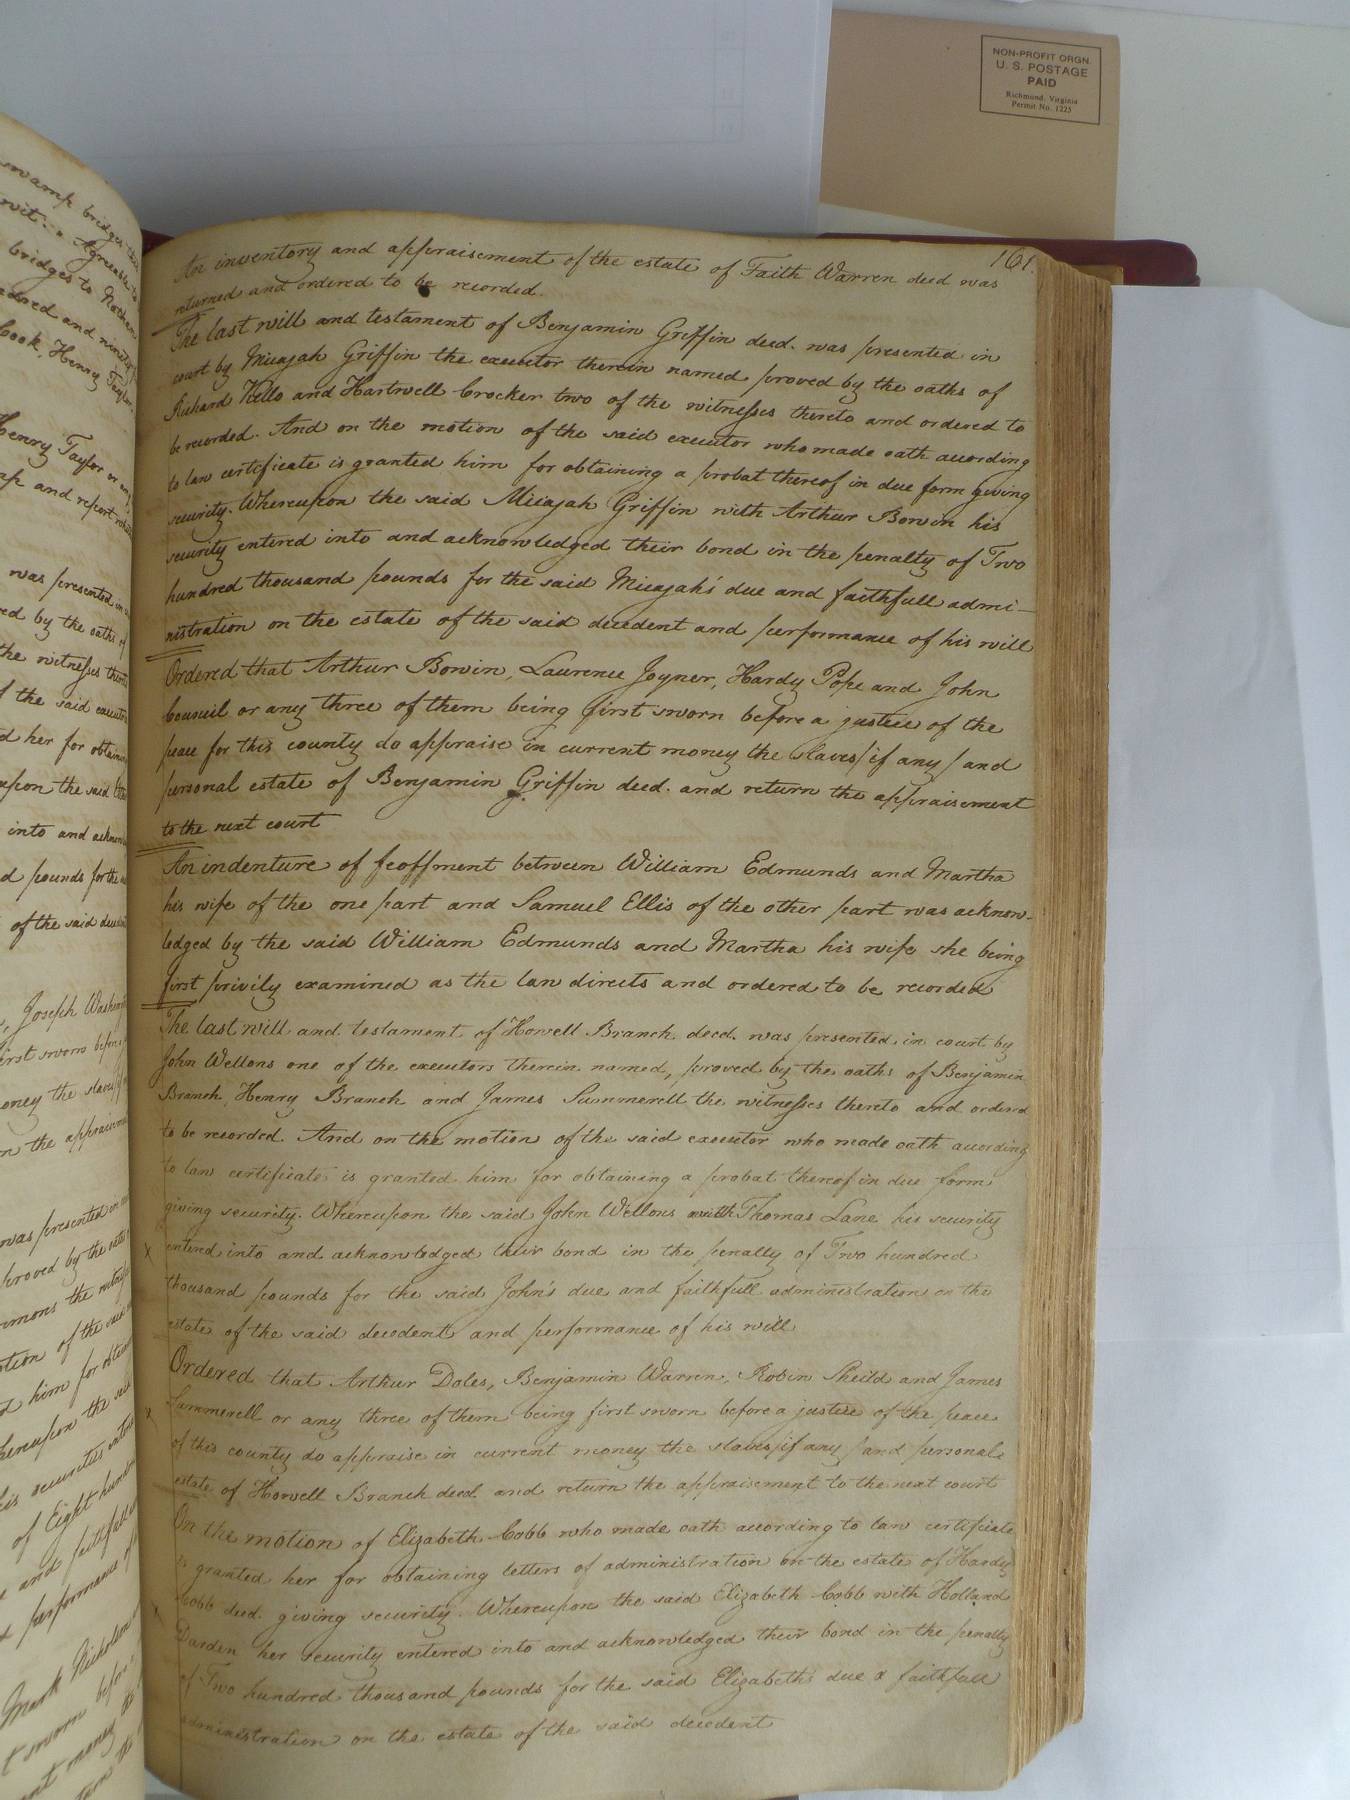 NON-PROFIT ORGN.
U. S. POSTAGE
PAID
Richmond, Virginia
Permit No. 1225
swamp bridges
bridges to Nathan
and ninety
Cook, Henry Taylor
Henry Taylor or any
and report
was presented in
by the oaths of
the witnesses
the said executor
her for
upon the said
into and
pounds for the
of the said
Joseph
first sworn before
the slaves
the appraisement
was presented in
proved by the oaths
the
of the said
him for
the said
his securities
of Eight hundred
and faithfull
performance of
Mark Nicholson
sworn before
money the
the
161.
An inventory and appraisement of the estate of Faith Warren decd was
returned and ordered to be recorded.
The last will and testament of Benjamin Griffin decd. was presented in
court by Micajah Griffin the executor therein named proved by the oaths of
Richard Kello and Hartwell Crocker two of the witnesses thereto and ordered to
be recorded. And on the motion of the said executor who made oath according
to law certificate is granted him for obtaining a probat thereof in due form giving
security. Whereupon the said Micajah Griffin with Arthur Bowin his
security entered into and acknowledged their bond in the penalty of Two
hundred thousand pounds for the said Micajah's due and faithfull admi-
nistration on the estate of the said decedent and performance of his will
Ordered that Arthur Bowin, Laurence Joyner, Hardy Pope and John
Council or any three of them being first sworn before a justice of the
peace for this county do appraise in current money the slaves/if any/and
personal estate of Benjamin Griffin decd. and return the appraisement
to the next court
An indenture of feoffment between William Edmunds and Martha
his wife of the one part and Samuel Ellis of the other part was acknow-
ledged by the said William Edmunds and Martha his wife she being
first privily examined as the law directs and ordered to be recorded
The last will and testament of Howell Branch decd. was presented in court by
John Wellons one of the executors therein named, proved by the oaths of Benjamin
Branch, Henry Branch and James Summerell the witnesses thereto and ordered
to be recorded. And on the motion of the said executor who made oath according
to law certificate is granted him for obtaining a probat thereof in due form
giving security. Whereupon the said John Wellons with Thomas Lane his security
enterd into and acknowledged their bond in the penalty of Two hundred
thousand pounds for the said John's due and faithfull administration on the
estate of the said decedent and performance of his will
Ordered that Arthur Doles, Benjamin Warren, Robin Sheild and James
Summerell or any three of them being first sworn before a justice of the peace
of this county do appraise in current money the slaves/if any/and personal
estate of Howell Branch decd. and return the appraisement to the next court
On the motion of Elizabeth Cobb who made oath according to law certificate
is granted her for obtaining letters of administration on the estate of Hardy
Cobb decd. giving security. Whereupon the said Elizabeth Cobb with Holland
Darden her security entered into and acknowledged their bond in the penalty
of Two hundred thousand pounds for the said Elizabeths due & faithfull
administration on the estate of the said decedent